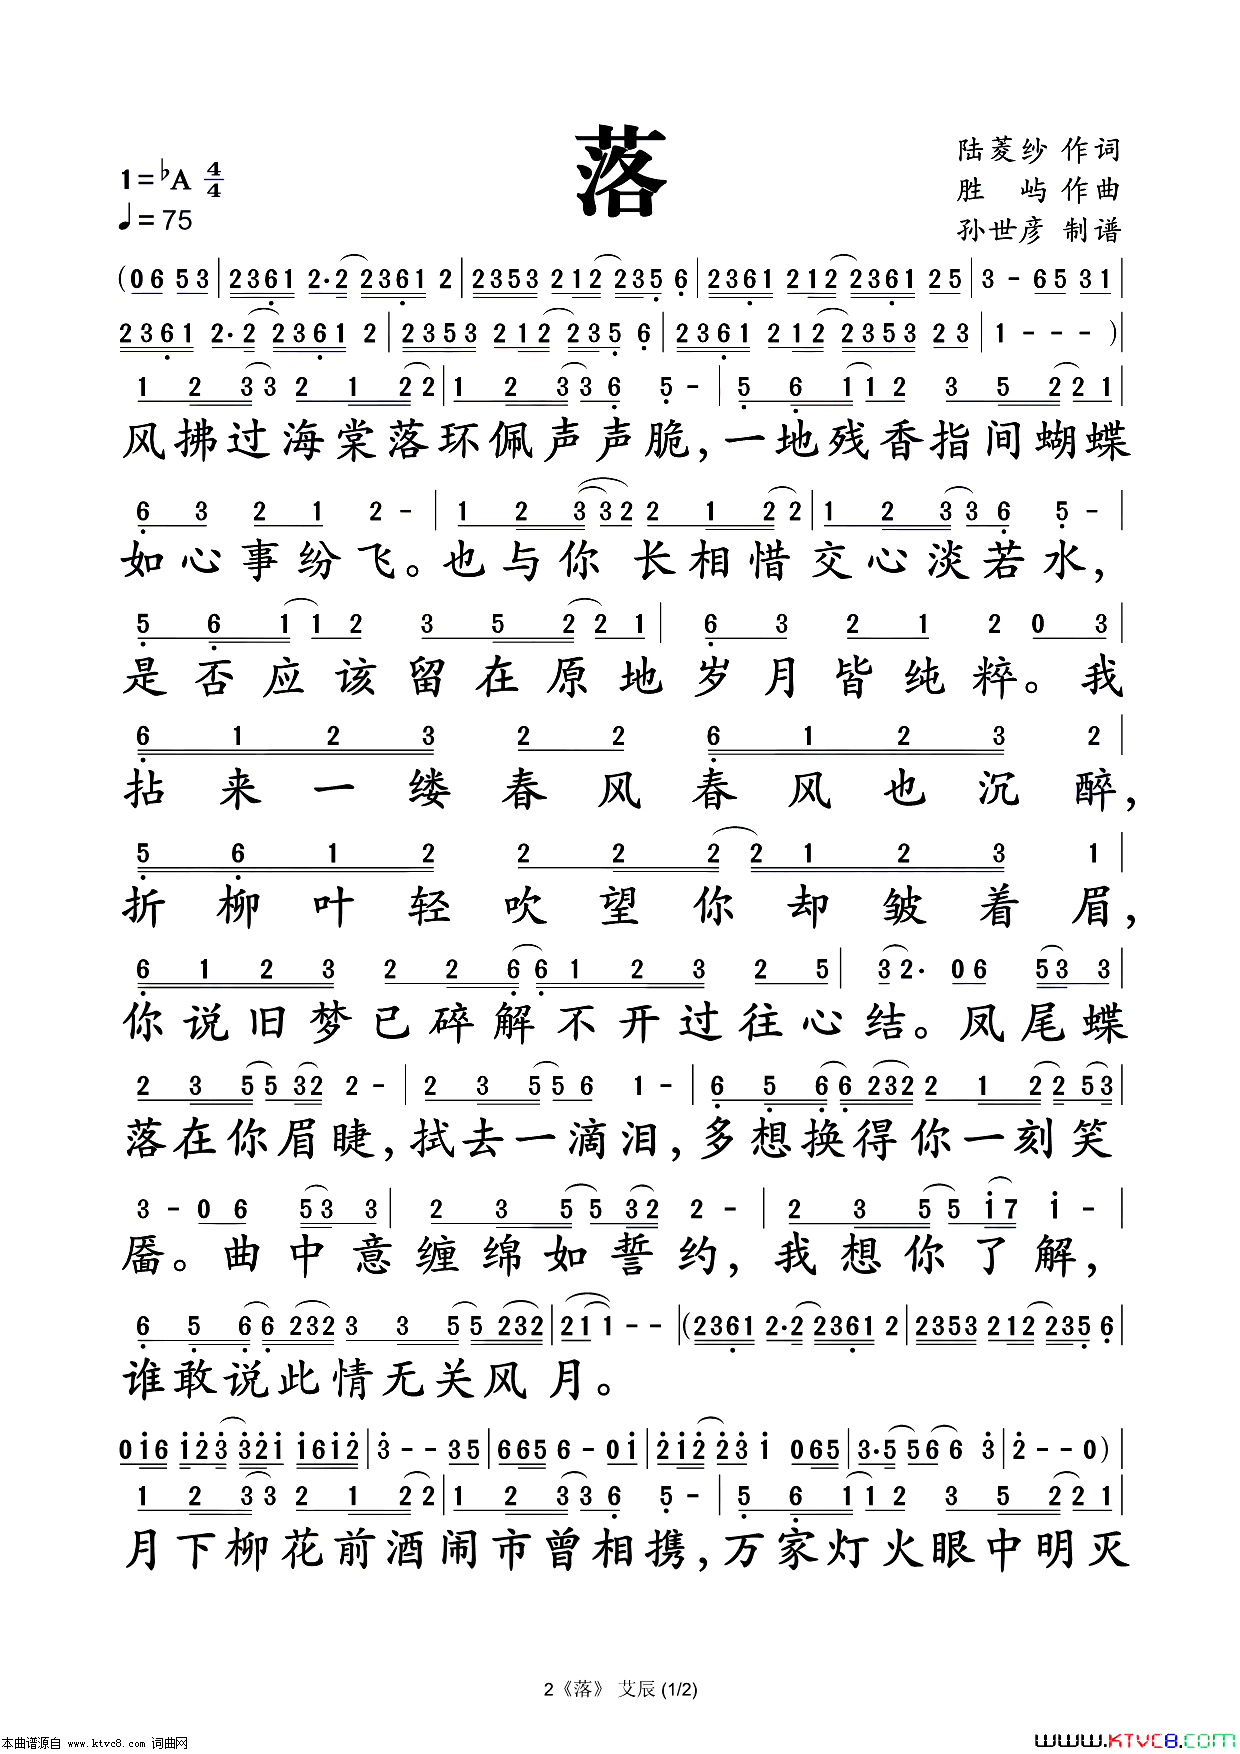 落
陆菱纱 作词
1=♭A 4/4
胜 屿 作曲
♩=75
孙世彦 制谱
(06 53|2361 2·2 2361 2|2353 212 235 6|2361 212 2361 25|3 - 65 31|
2361 2·2 2361 2|2353 212 235 6|2361 212 2353 23|1 - - - )|
1 2 33 2 1 22|1 2 336 5 -|5 6 112 3 5 221|
风拂过海棠落环佩声声脆,一地残香指间蝴蝶
6 3 2 1 2 -|1 2 3322 1 22|1 2 336 5 -|
如心事纷飞。也与你长相惜交心淡若水,
5 6 112 3 5 221|6 3 2 1 2 0 3|
是否应该留在原地岁月皆纯粹。我
6 1 2 3 2 2 6 1 2 3 2|
拈来一缕春风春风也沉醉,
5 6 1 2 2 2 2 2 1 2 3 1|
折柳叶轻吹望你却皱着眉,
6 1 2 3 2 2 6 6 1 2 3 2 5|32· 06 53 3|
你说旧梦已碎解不开过往心结。凤尾蝶
2 3 55 32 2 -|2 3 556 1 -|6 5 66 2322 1 22 53|
落在你眉睫,拭去一滴泪,多想换得你一刻笑
3 - 0 6 53 3|2 3 55 32 2 -|2 3 55 i7 i -|
靥。曲中意缠绵如誓约,我想你了解,
6 5 66 232 3 3 55 232|211 - -|(2361 2·2 2361 2|2353 212 235 6|
谁敢说此情无关风月。
0i6 i23 32i i6i2|3 - - 35|665 6 - 0i|2i2 23i 065|3·5 566 3|2 - - 0)|
1 2 33 2 1 22|1 2 336 5 -|5 6 112 3 5 221|
月下柳花前酒闹市曾相携,万家灯火眼中明灭
2《落》 艾辰 (1/2)
本曲谱源自 www.ktvc8.com 词曲网
www.KTVC8.com